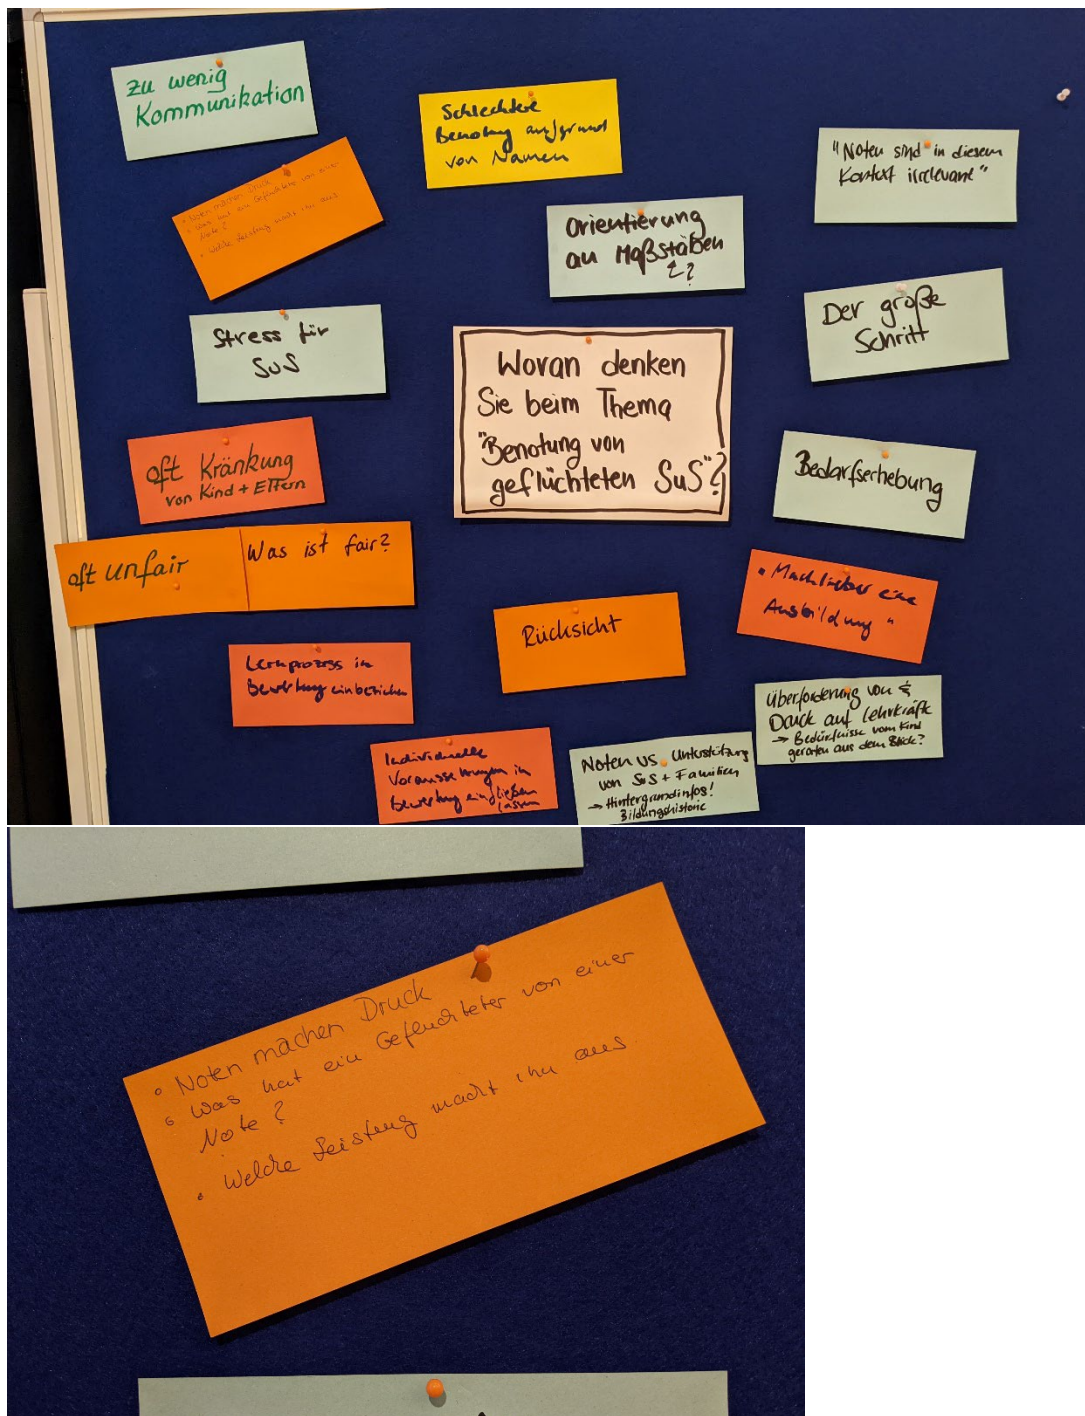 zu wenig
Kommunikation
Schlechtere
Benotung aufgrund
von Namen
"Noten sind in diesem
Kontext irrelevant"
• Noten machen Druck
• Was hat ein Geflüchteter von einer
Note?
• Welche Leistung macht ihn aus
Orientierung
an Maßstäben
??
Der große
Schritt
Stress für
SuS
Woran denken
Sie beim Thema
"Benotung von
geflüchteten SuS"?
oft Kränkung
von Kind + Eltern
Bedarfserhebung
oft unfair
Was ist fair?
"Mach lieber eine
Ausbildung"
Rücksicht
Lernprozess in
Bewertung einbeziehen
Überforderung von &
Druck auf Lehrkräfte
→ Bedürfnisse vom Kind
geraten aus dem Blick?
Individuelle
Voraussetzungen in
Bewertung einfließen
lassen
Noten vs. Unterstützung
von SuS + Familien
→ Hintergrundinfos!
Bildungshistorie
• Noten machen Druck
• Was hat ein Gefluchteter von einer
Note?
• Welche Leistung macht ihn aus